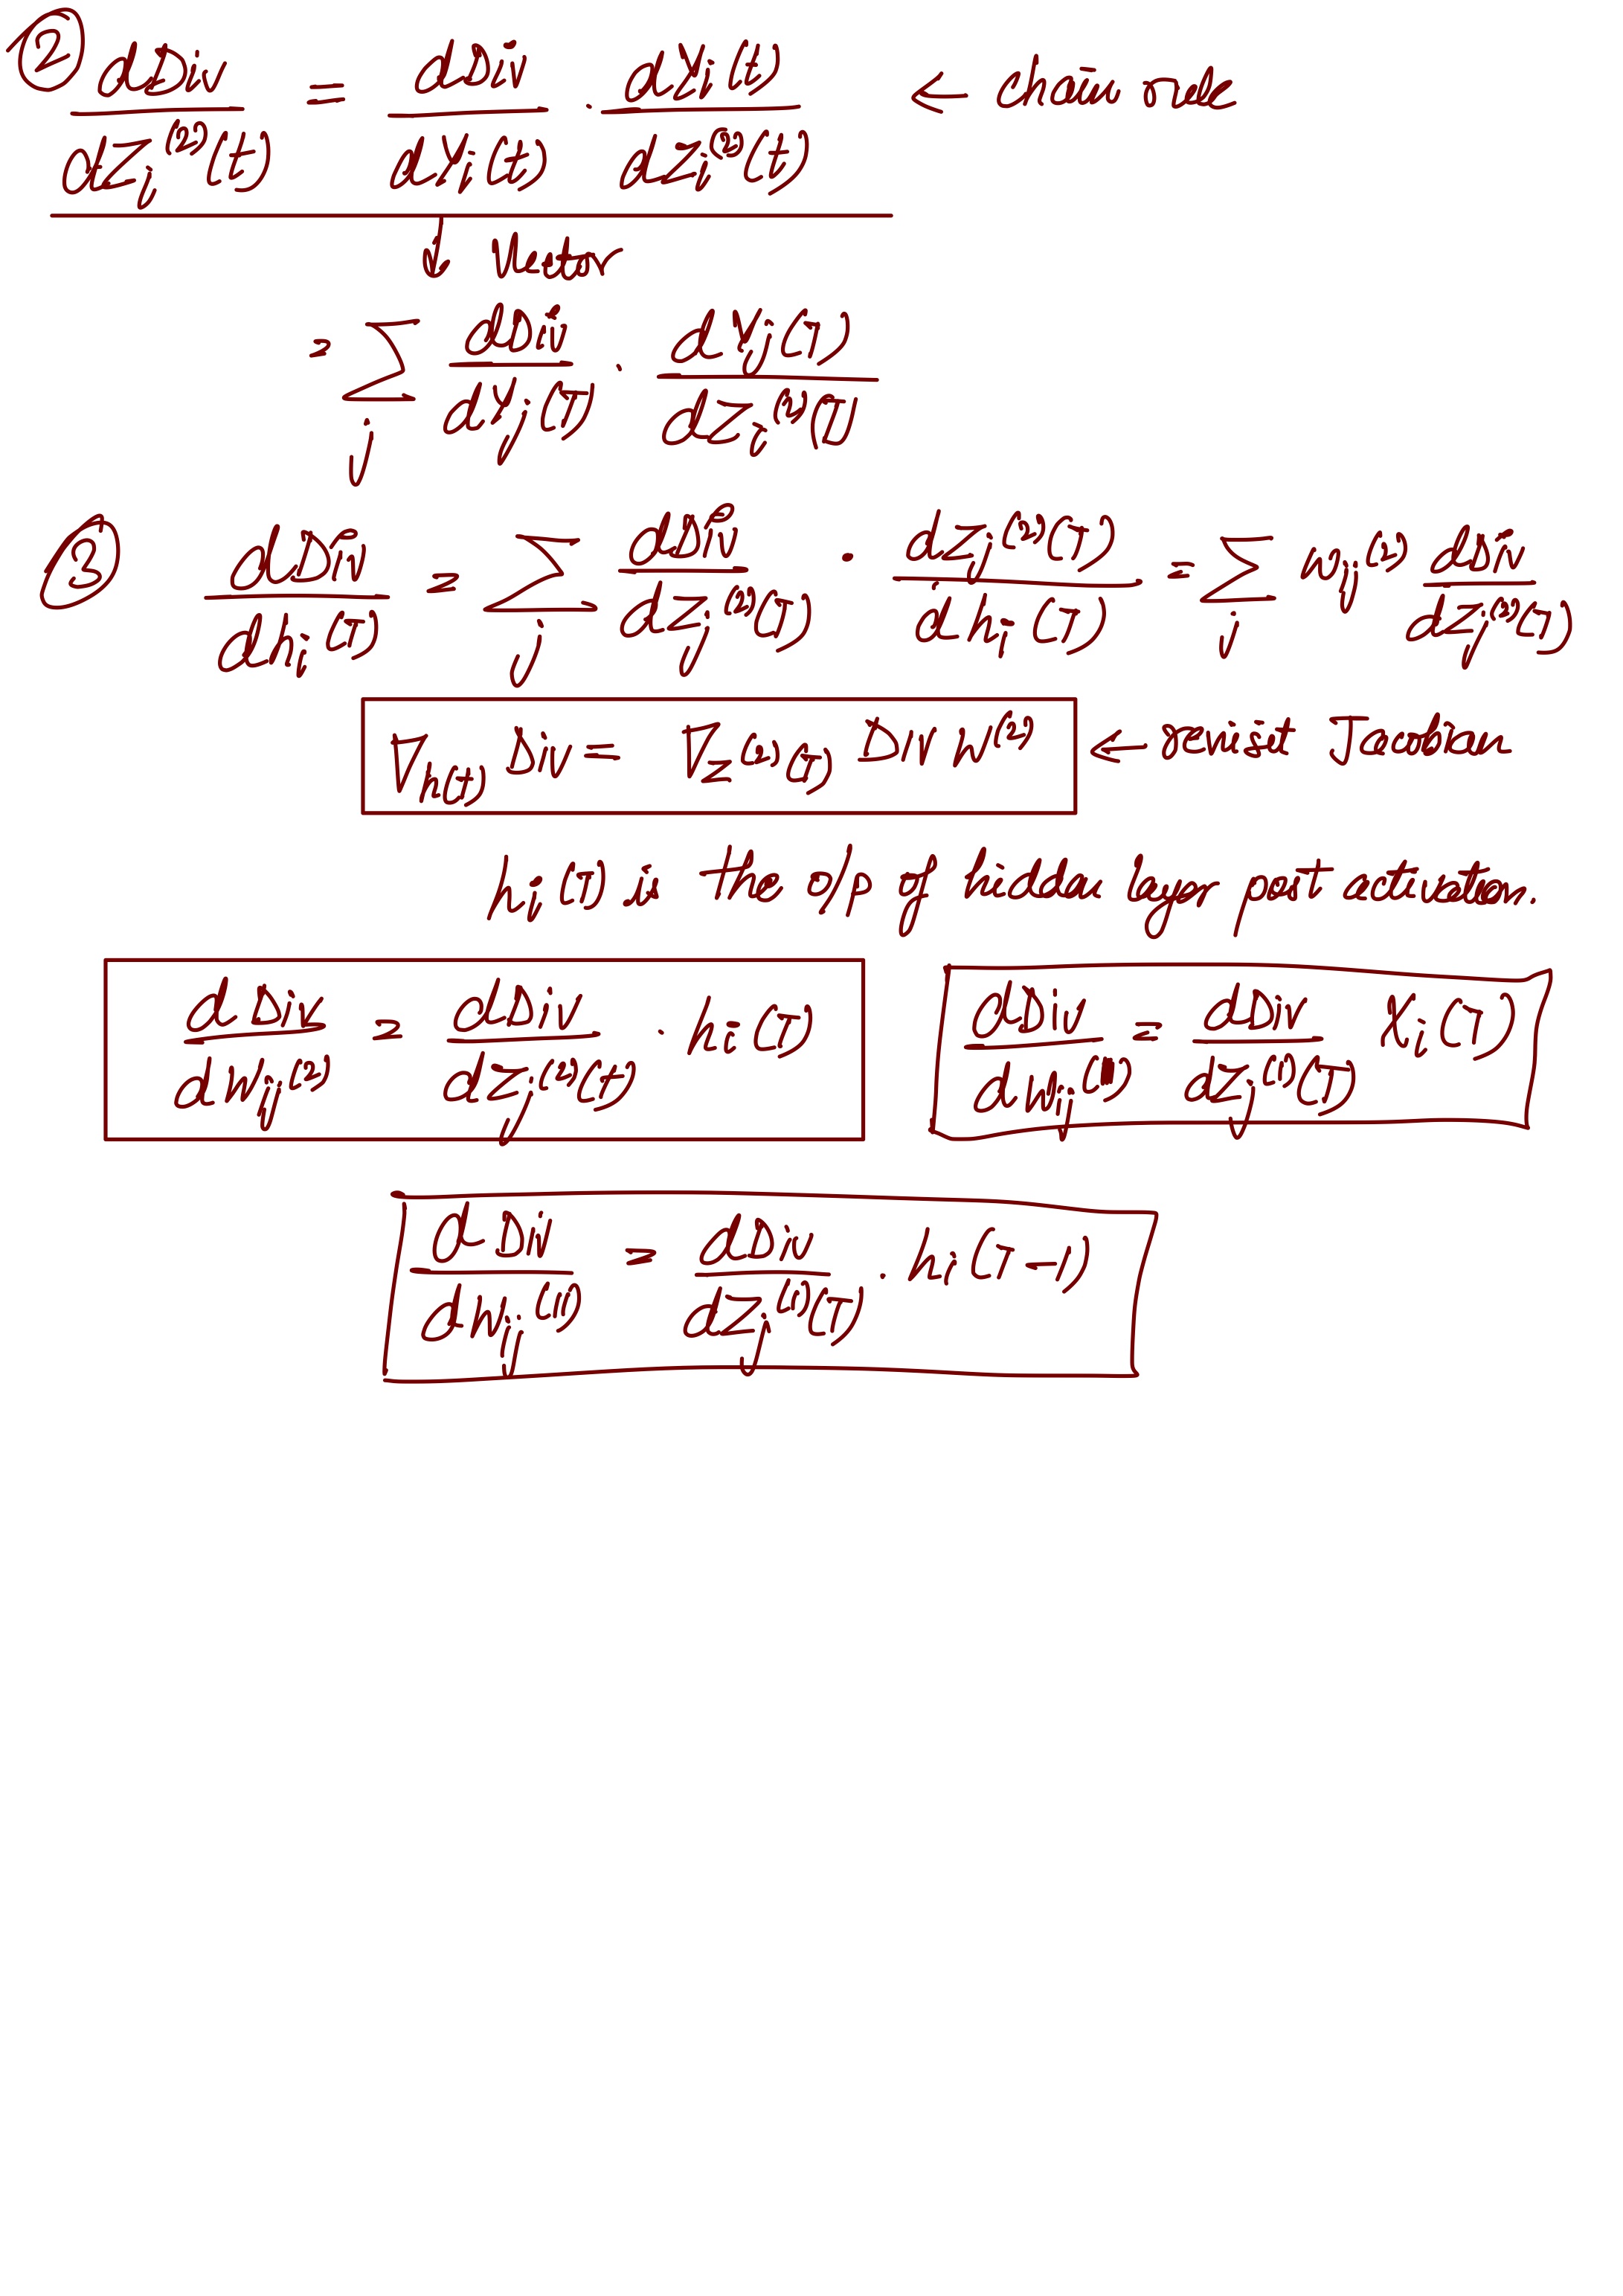 ② dDiv/dZ_i^(2)(t) = dDiv/dY_i(t) · dY_i(t)/dZ_i^(2)(t) ← chain rule
↓ Vector
= Σ_j dDiv/dY_j(T) · dY_j(T)/dZ_i^(2)(T)
③ dDiv/dh_i(T) = Σ_j dDiv/dZ_j^(2)(T) · dZ_j^(2)(T)/dh_i(T) = Σ_j w_ij^(2) dDiv/dZ_j^(2)(T)
∇_h(t) Div = ∇_Z^(2)(T) Div W^(2) ← revisit Jacobian
h_i(T) is the o/p of hidden layer post activation.
dDiv/dW_ij^(2) = dDiv/dZ_j^(2)(T) · h_i(T)
dDiv/dW_ij^(1) = dDiv/dZ_j^(1)(T) X_i(T)
dDiv/dW_ij^(11) = dDiv/dZ_j^(1)(T) · h_i(T-1)